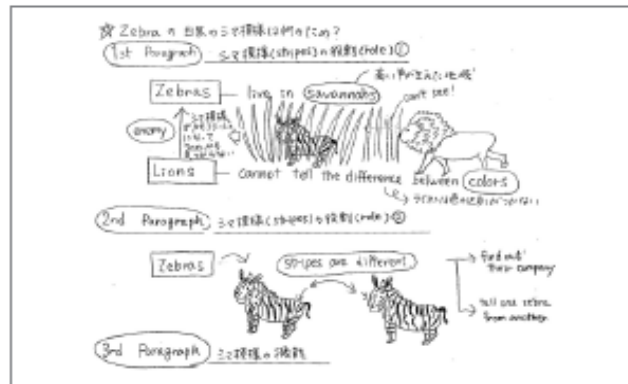 ☆ Zebra の 白黒のシマ模様は何のため?
1st Paragraph シマ模様(stripes)の役割(role)①
高い草が生えた地域
Zebras live in savannahs
can't see!
enemy シマ模様
Lions cannot tell the difference between colors
ライオンは色の区別がつかない
2nd Paragraph シマ模様(stripes)の役割(role)②
Zebras stripes are different
find out their company
tell one zebra from another
3rd Paragraph シマ模様の